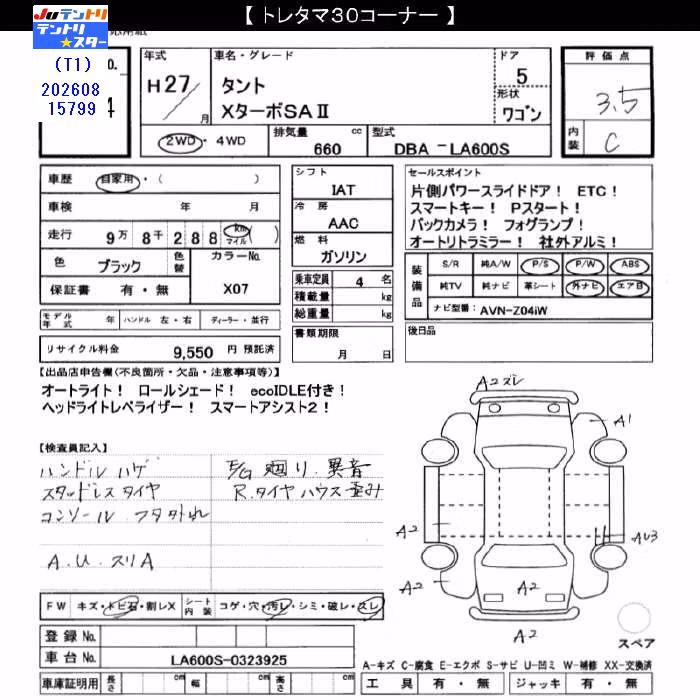 【 トレタマ30コーナー 】
JUテントリ
テントリ★スター
(T1)
202608
15799
No.
4
年式
H 27/ 月
車名・グレード
タント
XターボSAⅡ
ドア
5
形状
ワゴン
評価点
3.5
内装
C
2WD・4WD
排気量 cc
660
型式
DBA－LA600S
車歴 自家用・( )
車検 年 月
走行 9万 8千 2 8 8 km マイル ( )
色 ブラック 色替
カラーNo.
X07
保証書 有・無
モデル年式 年 ハンドル 左・右 ディーラー・並行
リサイクル料金 9,550 円 預託済
シフト
IAT
冷房
AAC
燃料
ガソリン
乗車定員 4 名
積載量 kg
総重量 kg
書類期限
月 日
セールスポイント
片側パワースライドドア！ ETC！
スマートキー！ Pスタート！
バックカメラ！ フォグランプ！
オートリトラミラー！ 社外アルミ！
装備品
S/R 純A/W P/S P/W ABS
純TV 純ナビ 革シート 外ナビ エアB
ナビ型番: AVN-Z04iW
後日品
【出品店申告欄(不良箇所・欠品・注意事項等)】
オートライト！ ロールシェード！ ecoIDLE付き！
ヘッドライトレベライザー！ スマートアシスト2！
【検査員記入】
ハンドル ハゲ
スタッドレスタイヤ
コンソール フタ外れ
A.U.スリA
E/G 廻り. 異音
R.タイヤハウス歪み
A2ズレ
A1
A2
AU3
A2
A2
A2
スペア
FW キズ・トビ石・割レX
シート内装 コゲ・穴・汚レ・シミ・破レ・スレ
登録No.
車台No. LA600S-0323925
車庫証明用 長さ cm 幅 cm 高さ cm
A-キズ C-腐食 E-エクボ S-サビ U-凹ミ W-補修 XX-交換済
工具 有・無 ジャッキ 有・無